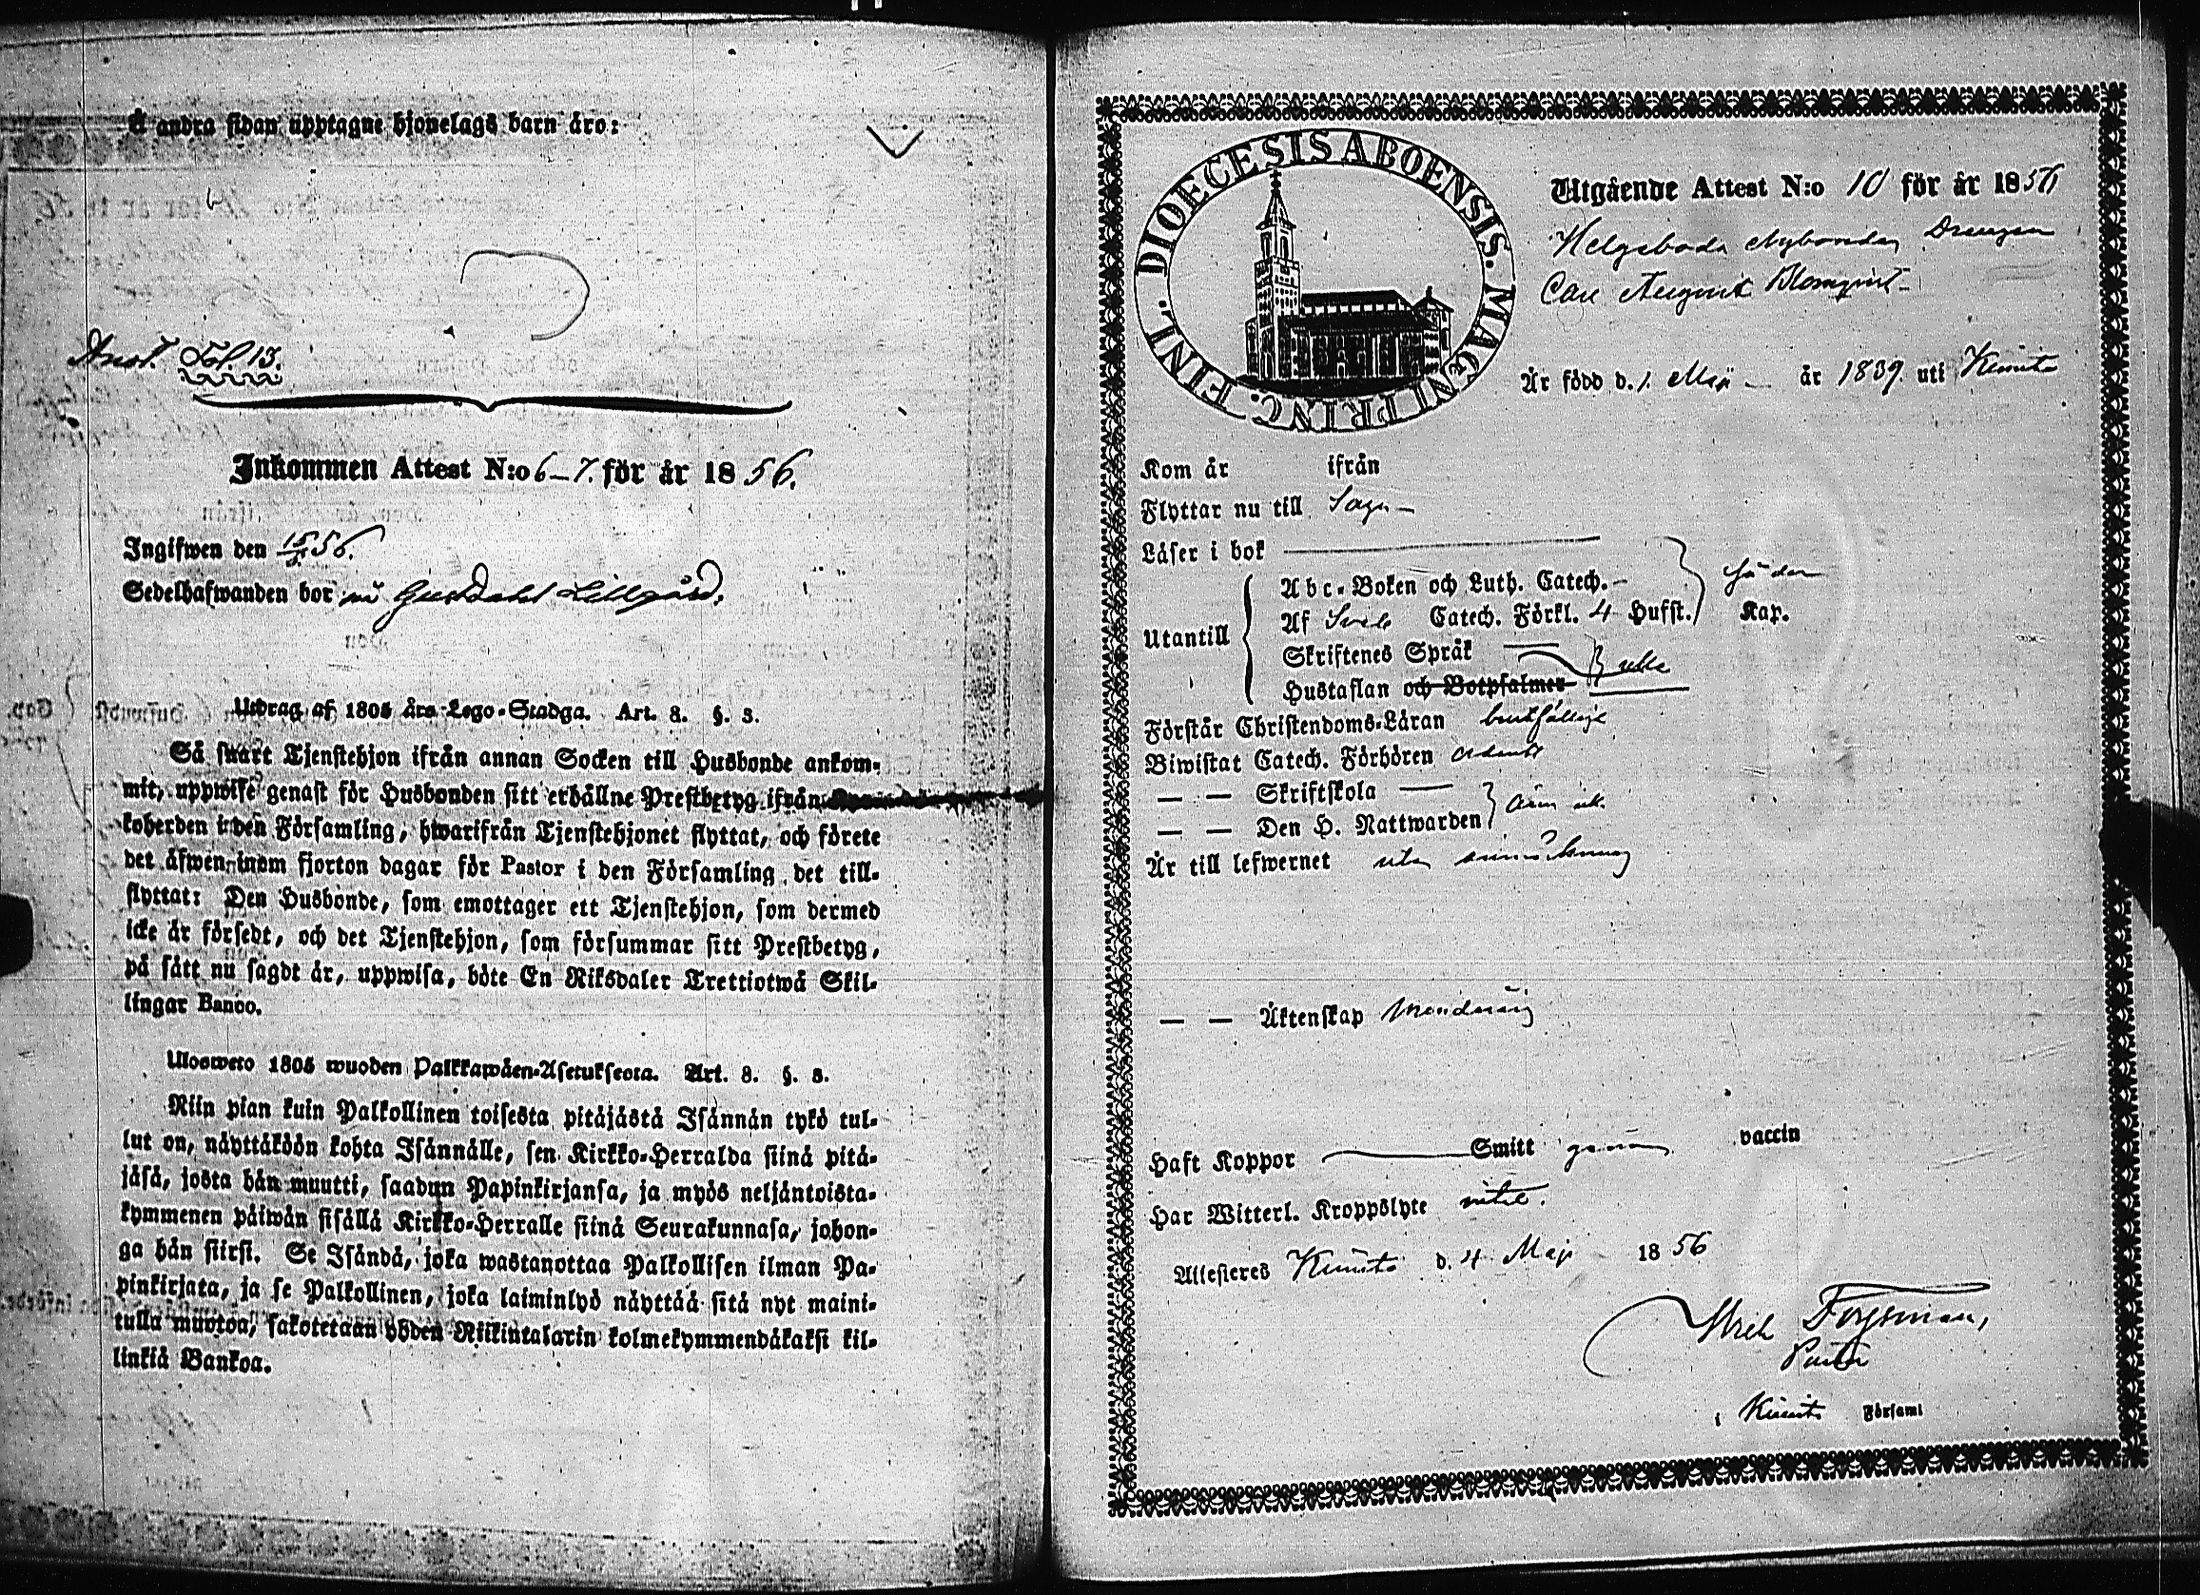 Å andra sidan upptagne hjonelags barn äro:
Anot. Fol. 13.
Inkommen Attest N:o 6–7. för år 1856.
Ingifwen den 15/5 56.
Sedelhafwanden bor nu Gundahl Lillgård.
Utdrag af 1805 års Lego-Stadga. Art. 8. §. 3.
Så snart Tjenstehjon ifrån annan Socken till Husbonde ankom-
mit, uppwise genast för Husbonden sitt erhållne Prestbetyg ifrån
koherden i den Församling, hwarifrån Tjenstehjonet flyttat, och förete
det äfwen inom fjorton dagar för Pastor i den Församling det till-
flyttat: Den Husbonde, som emottager ett Tjenstehjon, som dermed
icke är försedt, och det Tjenstehjon, som försummar sitt Prestbetyg,
på sätt nu sagdt är, uppwisa, böte En Riksdaler Trettiotwå Skil-
lingar Banco.
Uloswero 1805 wuoden Palkkawäen-Asetuksesta. Art. 8. §. 3.
Niin pian kuin Palkollinen toisesta pitäjästä Isännän tykö tul-
lut on, näyttäköön kohta Isännälle, sen Kirkko-Herralda siinä pitä-
jäsä, josta hän muutti, saadun Papinkirjansa, ja myös neljäntoista-
kymmenen päiwän sisällä Kirkko-Herralle siinä Seurakunnasa, johon-
ga hän siirsi. Se Isändä, joka wastanottaa Palkollisen ilman Pa-
pinkirjata, ja se Palkollinen, joka laiminlyö näyttää sitä nyt maini-
tulla muotoa, sakotetaan yhden Riikintalarin kolmekymmendäkaksi kil-
linkiä Bankoa.
DIOECESIS ABOENSIS. MAGNI PRINC. FINL.
Utgående Attest N:o 10 för år 1856
Helgeboda Nybondas Drengen
Carl August Blomqvist
Är född d. 1. Maj år 1839. uti Kimito
Kom år ifrån
Flyttar nu till Sagu
Läser i bok
Abc-Boken och Luth. Catech.
Utantill Af Sveb Catech. Förkl. 4 Hufst. Kap.
Skriftenes Språk
Hustaflan och Botpsalmer
Förstår Christendoms-Läran bristfällige
Biwistat Catech. Förhören
— — Skriftskola
— — Den H. Nattwarden
Är till lefwernet utan anmärkning
— — Äktenskap
Haft Koppor Smitt genom vaccin
Har Witterl. Kroppslyte intet.
Attesteres Kimito d. 4 Maj 1856
Forssman,
Pastor
i Kimito Församl